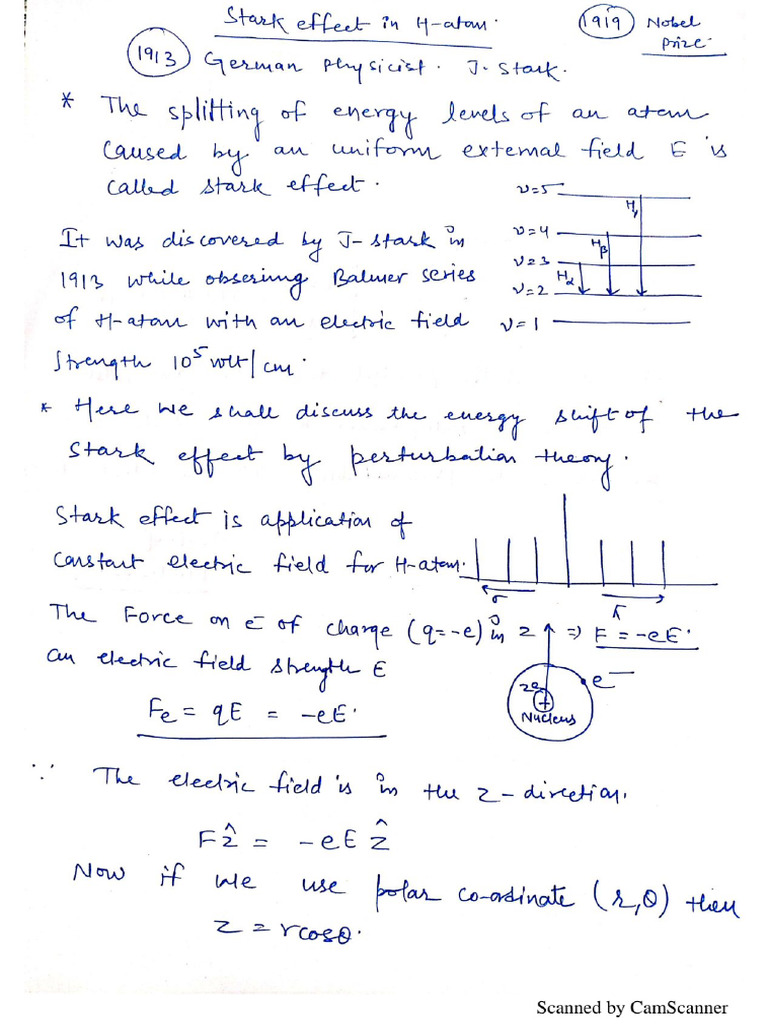 Stark effect in H-atom.
1919 Nobel Prize.
1913 German Physicist. J. Stark.
* The splitting of energy levels of an atom
caused by an uniform external field E is
called stark effect.
It was discovered by J-stark in
1913 while obsering Balmer series
of H-atom with an electric field
strength 10⁵ volt/cm.
ν=5
ν=4
ν=3
ν=2
ν=1
Hγ
Hβ
Hα
* Here we shall discuss the energy shift of the
stark effect by perturbation theory.
Stark effect is application of
constant electric field for H-atom.
σ
π
The Force on e⁻ of charge (q=-e) in z ⇒ F = -eE.
an electric field strength E
Fe = qE = -eE.
e⁻
ze
+
Nucleus
∵ The electric field is in the z-direction.
Fẑ = -eE ẑ
Now if we use polar co-ordinate (r,θ) then
z = rcosθ.
Scanned by CamScanner